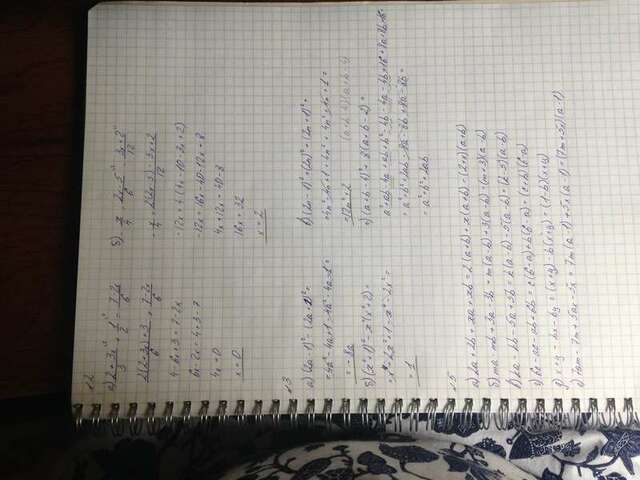 №2
а) (2+3x)/3 + 1/2 = (7-2x)/6
(2(2+3x)+3)/6 = (7-2x)/6
4-6x+3=7-2x
6x-2x=4+3-7
4x=0
x=0
б) -x/4 = (2x-5)/6 - (3x+2)/12
-x/4 = (2(2x-5)-3x+2)/12
-12x=4(4x-10-3x+2)
-12x=16x-40-12x+8
4x+12x=40-8
16x=32
x=2
№3
а) (2a-1)²-(2a+1)²=
=4a²-4a+1-4a²-4a-1=
=-8a
б) (x²+1)²-x²(x²+2)=
=x⁴+2x²+1-x⁴-2x²=
=1
в) (2n-1)²+(2n)²+(2n+1)²=
=4n²-4n+1+4n²+4n²+4n+1=
=12n²+2
(a+b-4)(a+b-4)
г) (a+b-4)²+8(a+b-2)=
=a²+b²+2ab-8a-8b+8a-8b=
=a²+b²+2ab
№5
а) 2a+2b+xa+xb=2(a+b)+x(a+b)=(2+x)(a+b)
б) ma-mb+3a-3b=m(a-b)+3(a-b)=(m+3)(a-b)
в) ka-kb-5a+5b=k(a-b)-5(a-b)=(k-5)(a-b)
г) bc-ac-ab+bb=c(b-a)+b(b-a)=(c+b)(b-a)
д) x+y-bx-by=(x+y)-b(x+y)=(1-b)(x+y)
е) 7am-7m+5ax-5x=7m(a-1)+5x(a-1)=(7m+5x)(a-1)